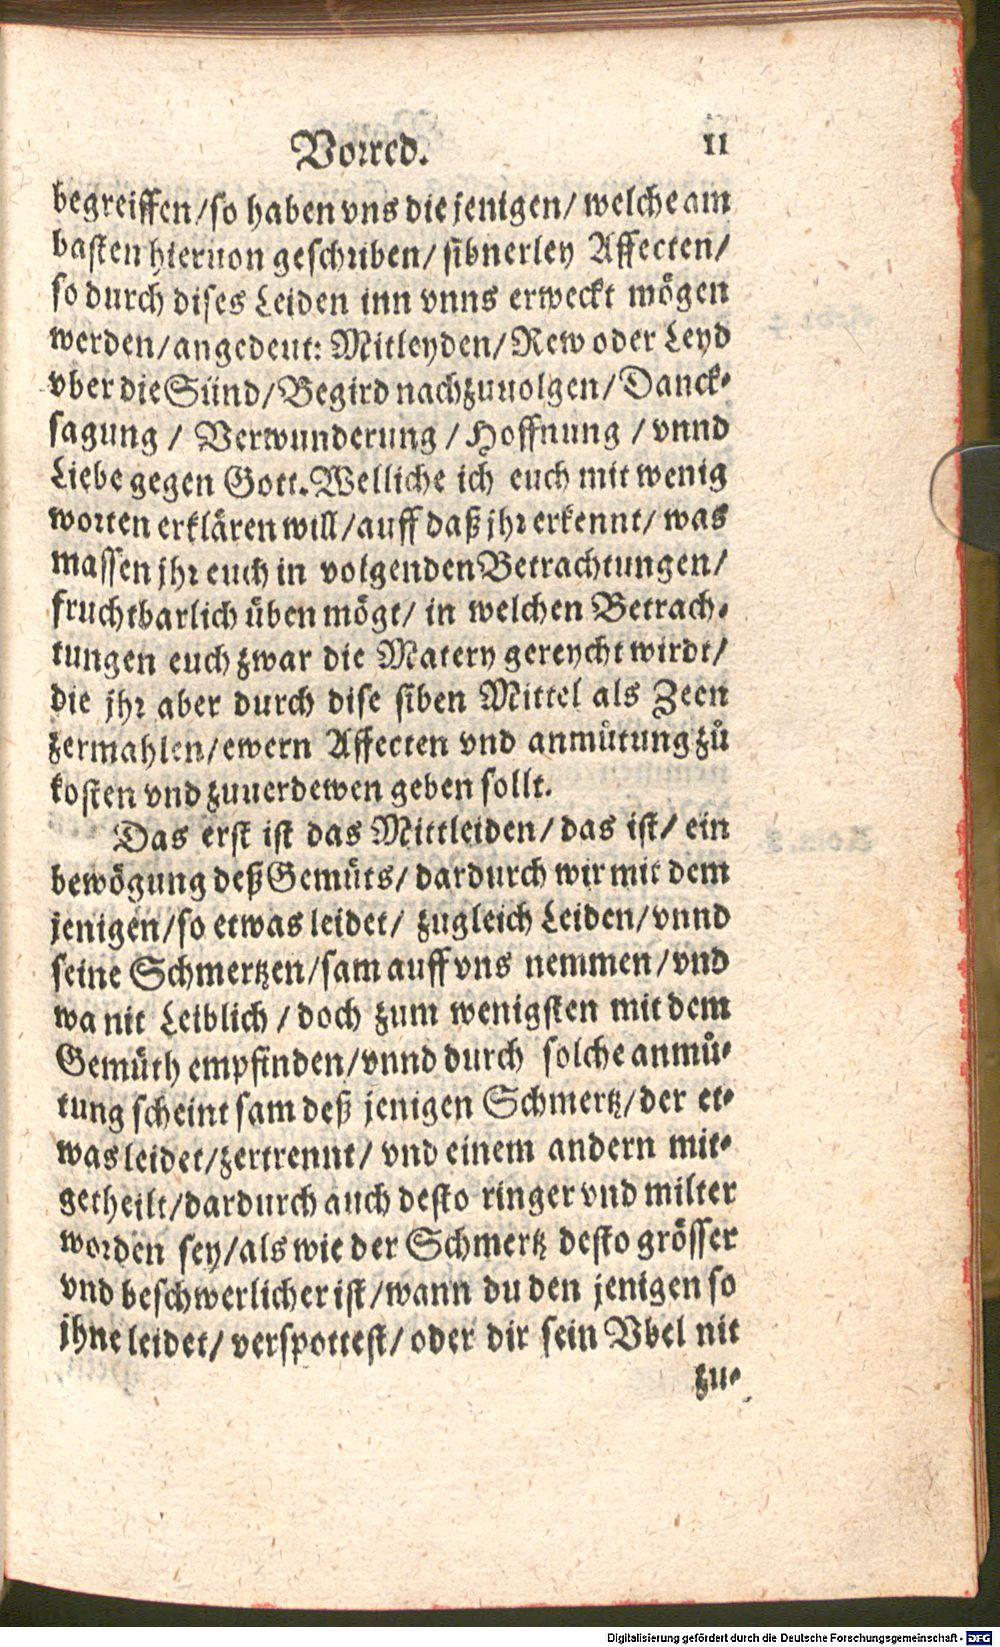 Vorred. 11
begreiffen/so haben vns die jenigen/ welche am
basten hieruon geschriben/ sibnerley Affecten/
so durch dises Leiden inn vnns erweckt mögen
werden/angedeut: Mitleyden/Rew oder Leyd
vber die Sünd/Begird nachzuuolgen/Danck-
sagung / Verwunderung / Hoffnung / vnnd
Liebe gegen Gott. Welliche ich euch mit wenig
worten erklären will/auff daß jhr erkennt/ was
massen jhr euch in volgenden Betrachtungen/
fruchtbarlich üben mögt/ in welchen Betrach-
tungen euch zwar die Matery gereycht wirdt/
die jhr aber durch dise siben Mittel als Zeen
zermahlen/ewern Affecten vnd anmütung zů
kosten vnd zuuerdewen geben sollt.
Das erst ist das Mittleiden/das ist/ ein
bewögung deß Gemüts/ dardurch wir mit dem
jenigen/so etwas leidet/ zugleich Leiden/vnnd
seine Schmertzen/sam auff vns nemmen/vnd
wa nit Leiblich / doch zum wenigsten mit dem
Gemüth empfinden/vnnd durch solche anmů-
tung scheint sam deß jenigen Schmertz/der et-
was leidet/zertrennt/ vnd einem andern mit-
getheilt/dardurch auch desto ringer vnd milter
worden sey/als wie der Schmertz desto grösser
vnd beschwerlicher ist/wann du den jenigen so
jhne leidet/ verspottest/ oder dir sein Vbel nit
zu-
Digitalisierung gefördert durch die Deutsche Forschungsgemeinschaft - DFG